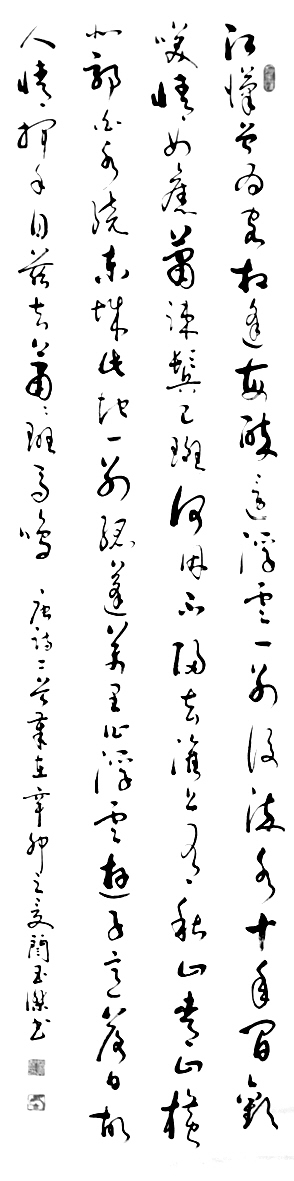 江漢曾為客相逢每醉還浮雲一別後流水十年間歡
咲情如舊蕭疎鬢已斑何因不歸去淮上有秋山青山橫
北郭白水繞東城此地一別孤蓬萬里征浮雲遊子意落日故
人情揮手自茲去蕭〻斑馬鳴 唐詩二首 在辛卯之夏 玉傑書